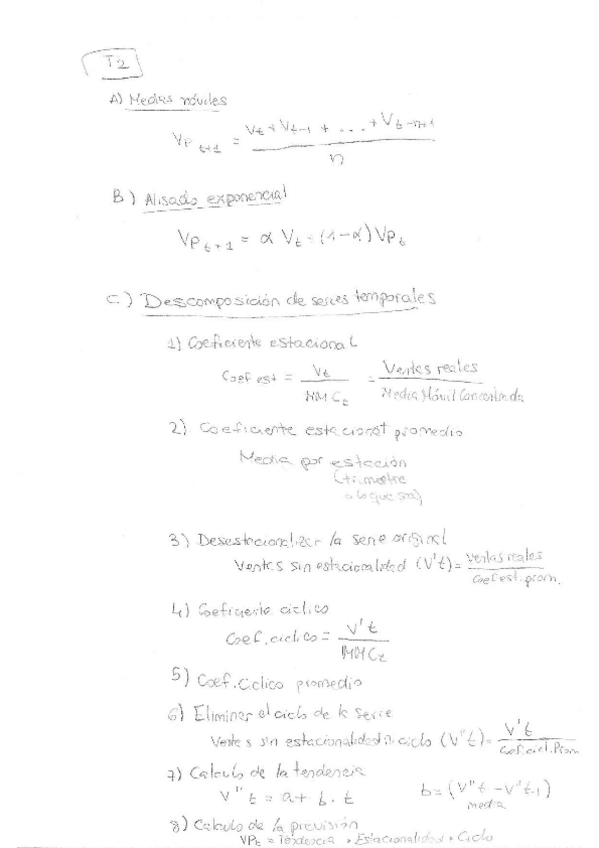 T2
A) Medias móviles
VP t+1 = Vt + Vt-1 + ... + Vt-n+1 / n
B) Alisado exponencial
VP t+1 = α Vt + (1-α) VPt
C) Descomposición de series temporales
1) Coeficiente estacional
Coef est = Vt / MMCt = Ventas reales / Media Móvil Concentrada
2) Coeficiente estacional promedio
Media por estación
(trimestre
o lo que sea)
3) Desestacionalizar la serie original
Ventas sin estacionalidad (V't) = Ventas reales / Coef est. prom.
4) Coeficiente cíclico
Coef. ciclico = V't / MMCt
5) Coef. Cíclico promedio
6) Eliminar el ciclo de la serie
Ventas sin estacionalidad ni ciclo (V''t) = V't / Coef. cicl. Prom
7) Calculo de la tendencia
V''t = a + b · t b = (V''t - V''t-1) media
8) Calculo de la previsión
VPt = Tendencia * Estacionalidad * Ciclo